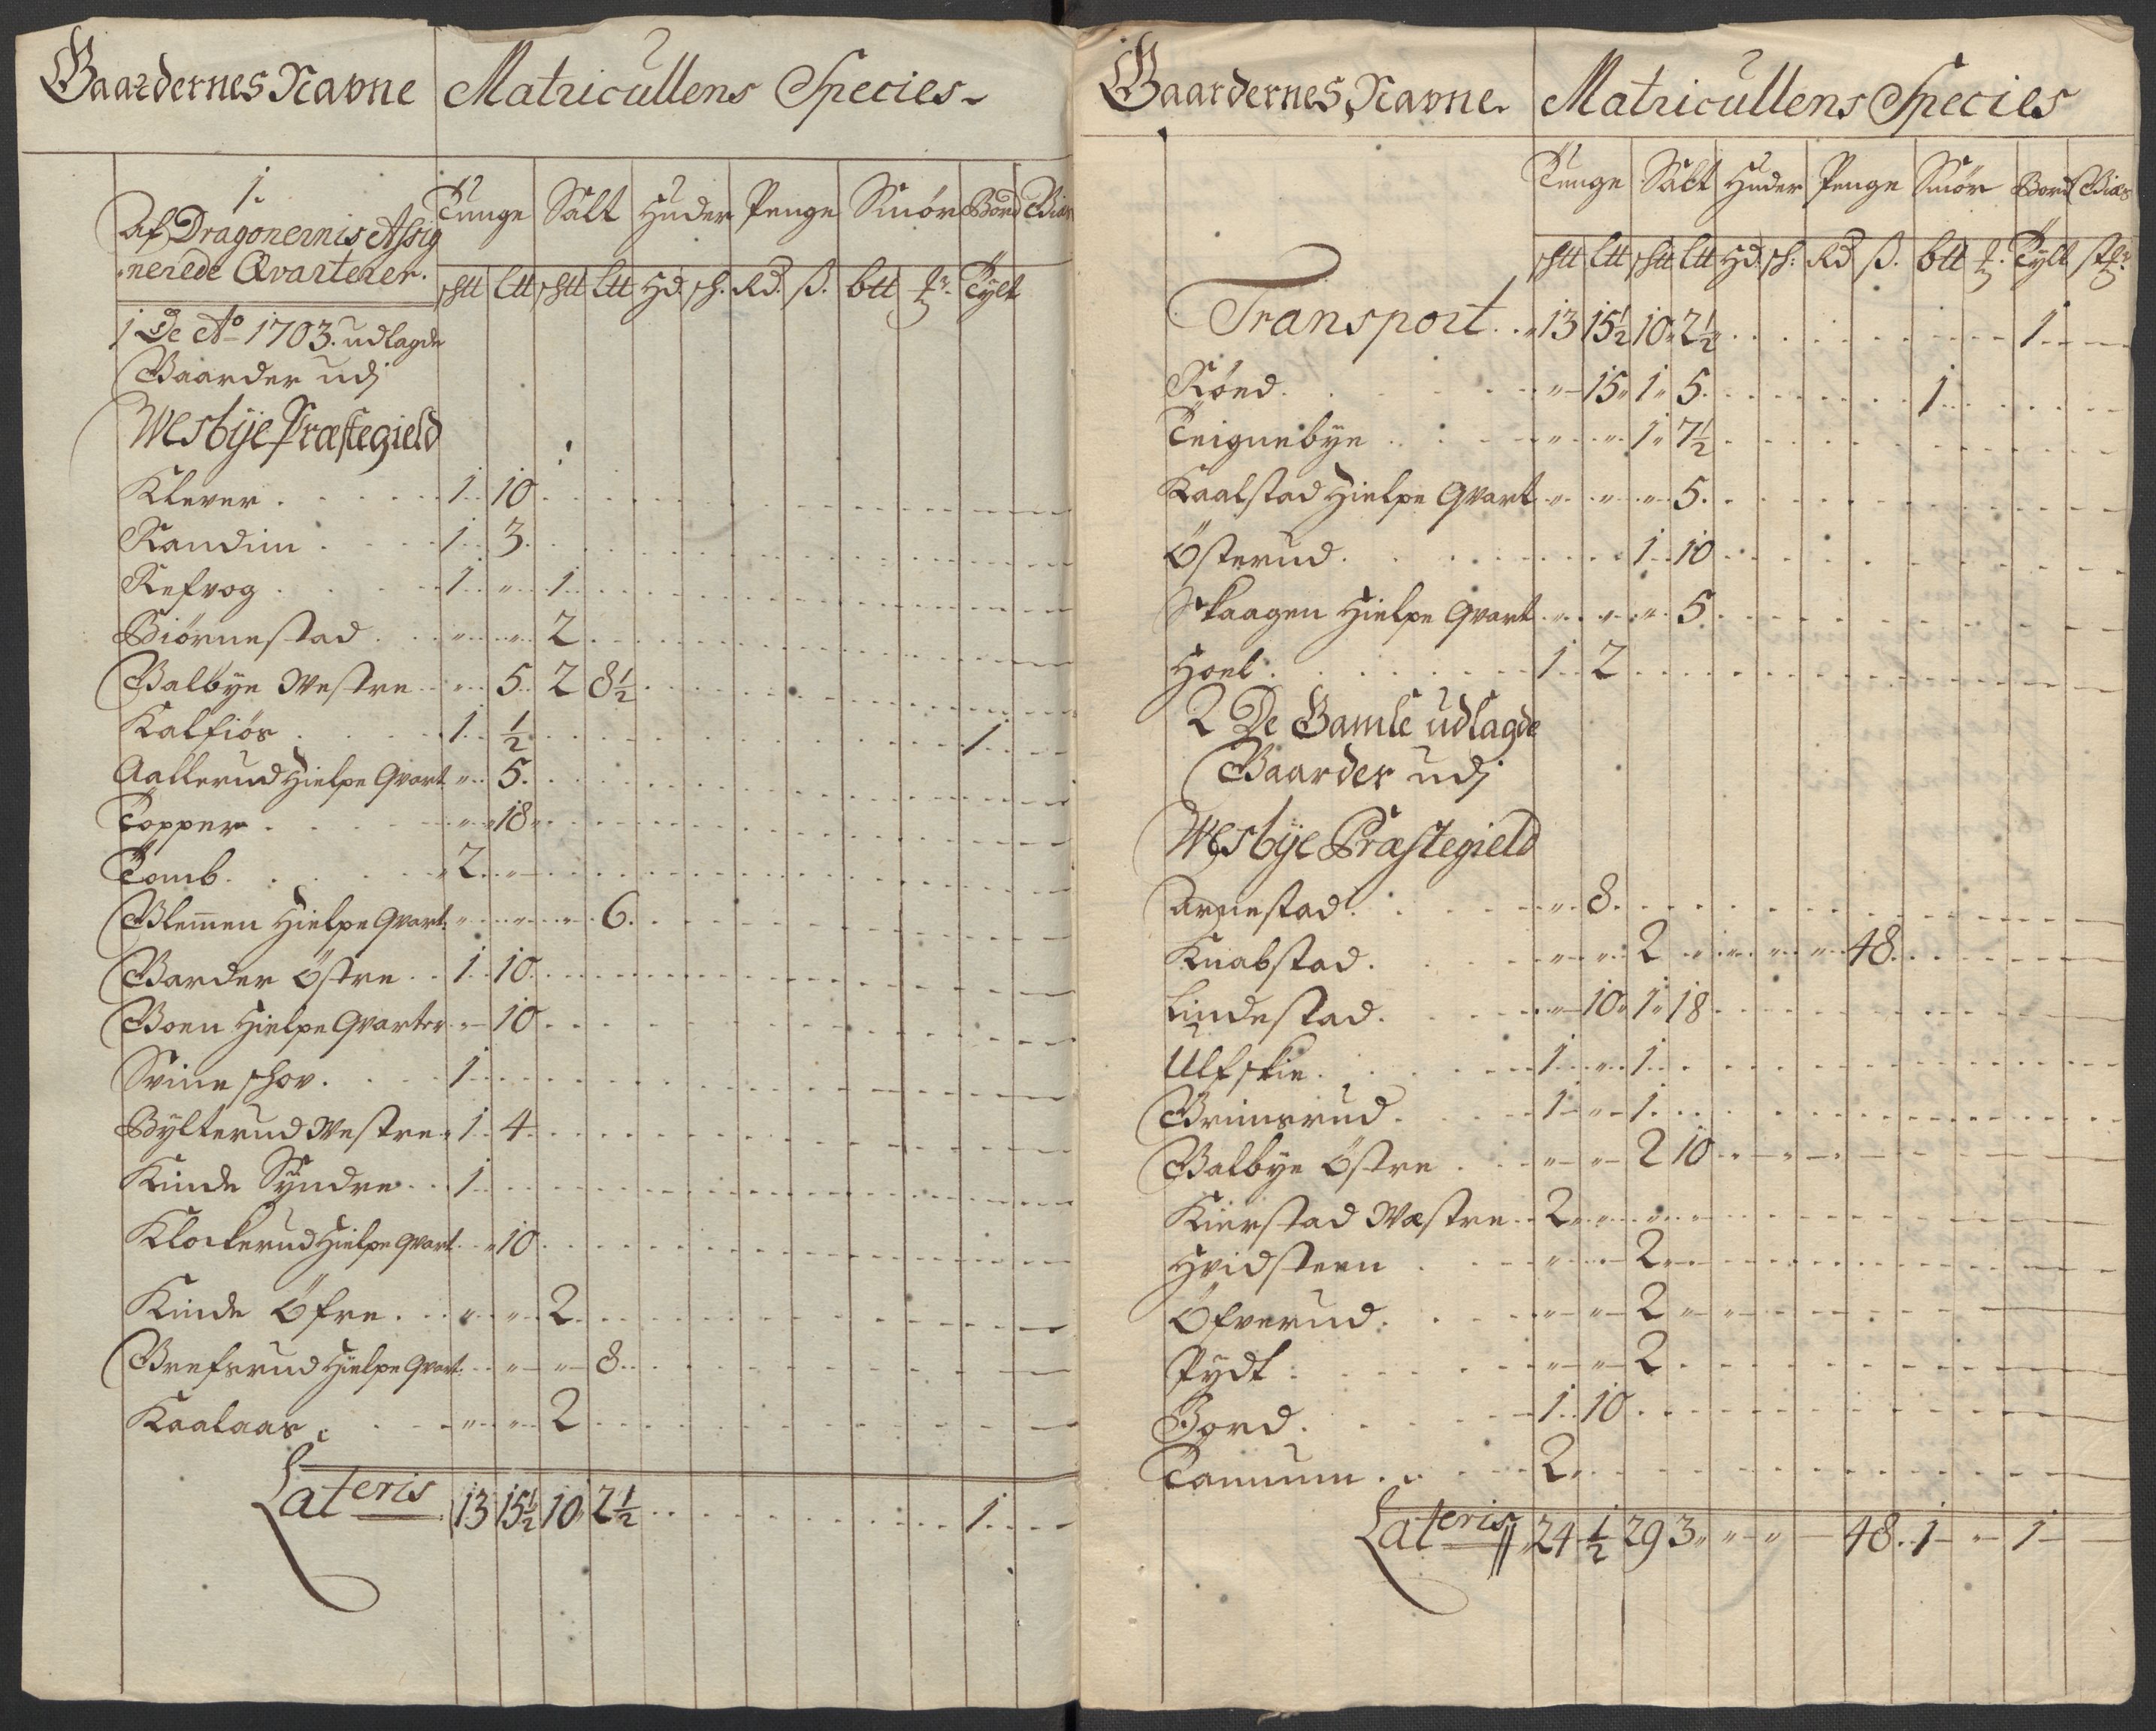 Gaardernes Navne Matricullens Species
1.
Af Dragonernis Assig
nerede Qvarterer.
Tunge Salt Huder Penge Smør Bord
shtt ltt shtt ltt Hd. sh. Rd. ß. btt Tylt
1 De Ao 1703. udlagde
Gaarder udj
Wesbye Præstegield
Klever 1 10
Randim 1 3
Refvog 1 „ 1
Biørnestad „ „ 2
Galbye Westre „ 5 2 8½
Kalfiøs 1 ½ 1
Aallerud Hielpe Qvart „ 5
Topper „ 18
Tomb 2 „
Glemen Hielpe Qvart: „ „ „ 6
Garder Östre 1 10
Goen Hielpe Qvarter „ 10
Svine shov 1
Bylterud Westre 1 4
Kinde Syndre 1
Klockerud Hielpe Qvart „ 10
Kinde Öfre „ „ 2
Grefsrud Hielpe Qvart: „ „ 8
Kaalaas „ „ 2
Lateris 13 15½ 10 2½ 1
Gaardernes Navne Matricullens Species
Tunge Salt Huder Penge Smör Bord
shtt ltt shtt ltt Hd. sh: Rd ß. btt Tylt
Transport 13 15½ 10 2½ 1
Röed „ 15 1 5 1
Teignebye „ „ 1 7½
Kaalstad Hielpe Qvart „ „ „ 5
Österud 1 10
Skaagen Hielpe Qvart „ „ „ 5
Hoel 1 2
2 De Gamle udlagde
Gaarder udj
Wesbye Præstegield
Arnestad „ 8
Knabstad „ „ 2 „ „ „ „ 48
Lindestad „ 10 1 18
Ulfskie 1 „ 1
Grimsrud 1 „ 1
Galbye Östre „ „ 2 10
Kierstad Wæstre 2 „ „ „
Hvidsteen „ „ 2
Öfverud „ „ 2 „ „
Pydt „ „ 2
Bord 1 10
Tamum 2
Lateris 24 ½ 29 3 „ „ „ 48 1 „ 1